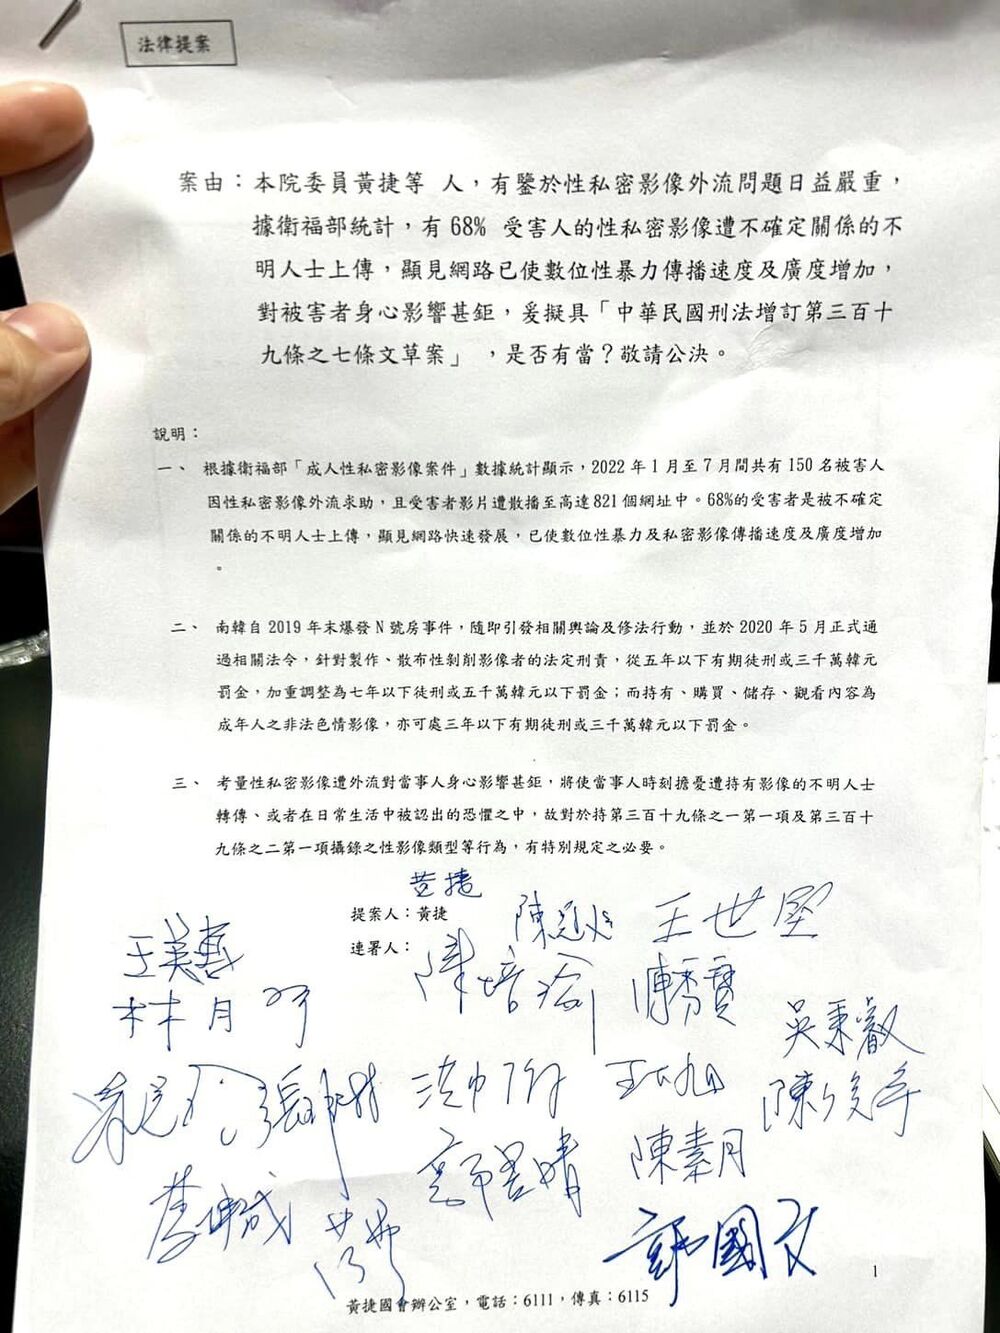 法律提案
案由：本院委員黃捷等 人，有鑒於性私密影像外流問題日益嚴重，
據衛福部統計，有 68% 受害人的性私密影像遭不確定關係的不
明人士上傳，顯見網路已使數位性暴力傳播速度及廣度增加，
對被害者身心影響甚鉅，爰擬具「中華民國刑法增訂第三百十
九條之七條文草案」 ，是否有當？敬請公決。
說明：
一、 根據衛福部「成人性私密影像案件」數據統計顯示，2022 年 1 月至 7 月間共有 150 名被害人
因性私密影像外流求助，且受害者影片遭散播至高達 821 個網址中。68%的受害者是被不確定
關係的不明人士上傳，顯見網路快速發展，已使數位性暴力及私密影像傳播速度及廣度增加
。
二、 南韓自 2019 年末爆發 N 號房事件，隨即引發相關輿論及修法行動，並於 2020 年 5 月正式通
過相關法令，針對製作、散布性剝削影像者的法定刑責，從五年以下有期徒刑或三千萬韓元
罰金，加重調整為七年以下徒刑或五千萬韓元以下罰金；而持有、購買、儲存、觀看內容為
成年人之非法色情影像，亦可處三年以下有期徒刑或三千萬韓元以下罰金。
三、 考量性私密影像遭外流對當事人身心影響甚鉅，將使當事人時刻擔憂遭持有影像的不明人士
轉傳、或者在日常生活中被認出的恐懼之中，故對於持第三百十九條之一第一項及第三百十
九條之二第一項攝錄之性影像類型等行為，有特別規定之必要。
黃捷
提案人：黃捷
連署人：
王世堅
王美惠
陳培瑜
陳秀寳
林月琴
吳秉叡
陳俊宇
陳素月
郭國文
1
黃捷國會辦公室，電話：6111，傳真：6115